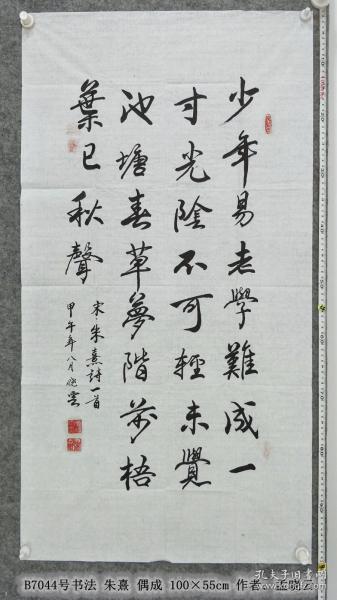 少年易老學難成一
寸光陰不可輕未覺
池塘春草夢階前梧
葉已秋聲
宋·朱熹詩一首
甲午年八月曉雲
B7044号书法 朱熹 偶成 100×55cm 作者:孟晓云
孔夫子旧书网